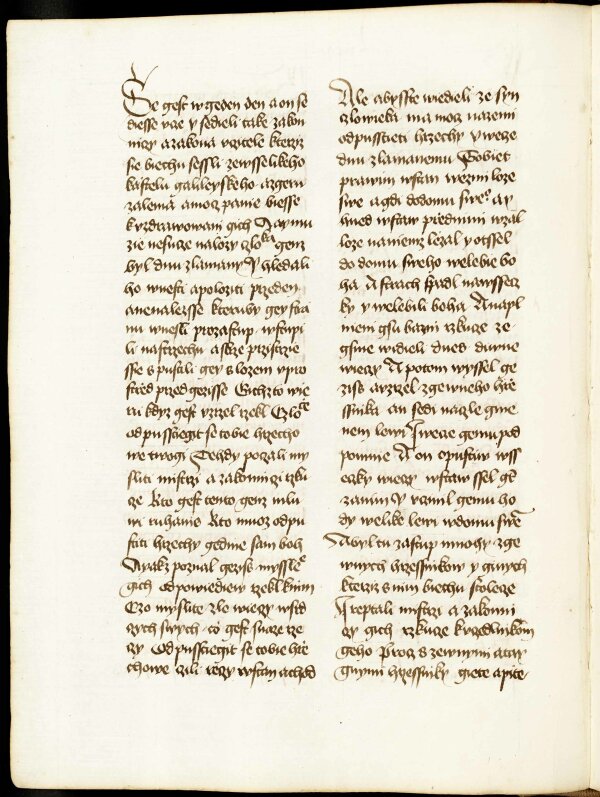 Se geſt w geden den a on ſe
dieſſe vcie y ſedieli take zakon
niczy a zakona vcztele kterziz
ſie biechu ſeſſli ze wſſelikeho
kaſtelu galileyſkeho a zgeru
zalema a mocz panie bieſſe
k vzdrawowani gich A ay mu
zie neſucze na lozy czloka genz
byl dnu zlamany Y hledali
ho wneſti a poloziti przeden
a nenalezſſe kteruby gey ſtra
nu wneſli pro zaſtup wſtupi
li na ſtrzechu a ſkrze przikrzie
ſſie spuſtili gey s lozem v pro
ſtrzed przed gezieſſe Gichzto wie
ru kdyz geſt vzrzel rzekl Czloczie
odpuſſtiegit ſe tobie hrzecho
we twogi Tehdy poczali my
ſliti miſtrzi a zakonniczi rzku
cze Kto geſt tento genz mlu
wi ruhanie Kto muoz odpu
ſtiti hrzechy gedine ſam boh
A yakz poznal gezis myſſle
gich odpowiediew rzekl k nim
Czo myſlite zle wieczy w ſrd
czych ſwych czo geſt ſnaze rze
czy Odpuſſtiegit ſe tobie hrie
chowe czili rzeczy wſtan a chod
Ale abyſſte wiedieli ze ſyn
czlowieka ma mocz na zemi
odpuſſtieti hrzechy y wecze
dnu zlamanemu Tobiet
prawim wſtan wezmi loze
ſwe a gdi do domu ſweo a y
hned wſtaw przed nimi wzal
loze na niemz lezal y otſſel
do domu ſweho welebie bo
ha A ſtrach ſpadl na wſſecz
ky y welebili boha A napl
nieni gſu bazni rzkucze ze
gſme widieli dnes diwne
wieczy A potom wyſſel ge
zis a vzrzel zgewneho hrie
ſſnika an ſedi na czle gme
nem lewi I wecze gemu pod
po mnie A on opuſtiw wſſ
eczky wieczy wſtaw ſſel geſt
za nim Y vczinil gemu ho
dy welike lewi w domu ſwe
A byl tu zaſtup mnohy zge
wnych hrzeſſnikow y ginych
kterziz s nim biechu ſtolecze
I reptali miſtrzi a zakonni
czy gich rzkucze k vczedlnikom
geho Procz s zewnymi a taky
gnymi hrzeſſniky giete a pite